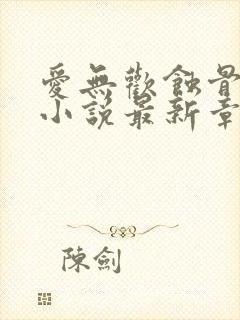 愛無歡蝕骨
小說最新章
陳劍